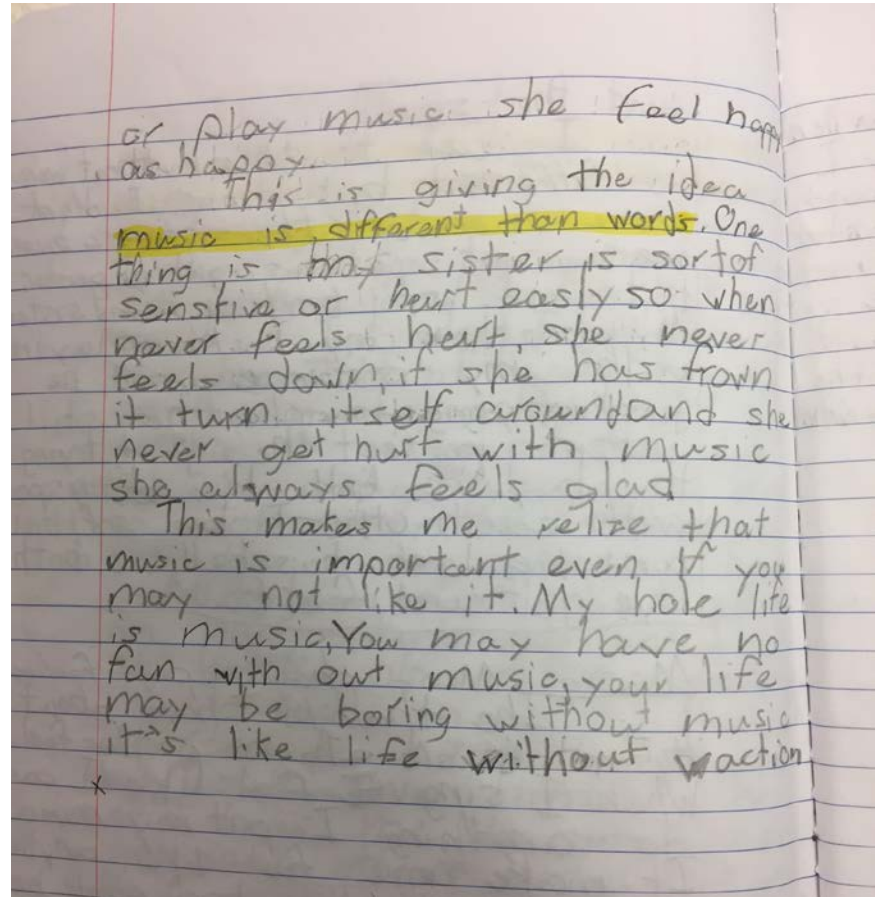 or play music she feel happy
as happy.
This is giving the idea
music is different than words. One
thing is my sister is sortof
senstive or heurt easly so when
never feels heurt, she never
feels down, if she has frown
it turn itself around and she
never get hurt with music
she always feels glad
This makes me relize that
music is important even if you
may not like it. My hole life
is music, You may have no
fun with out music, your life
may be boring without music
it's like life without vaction
x